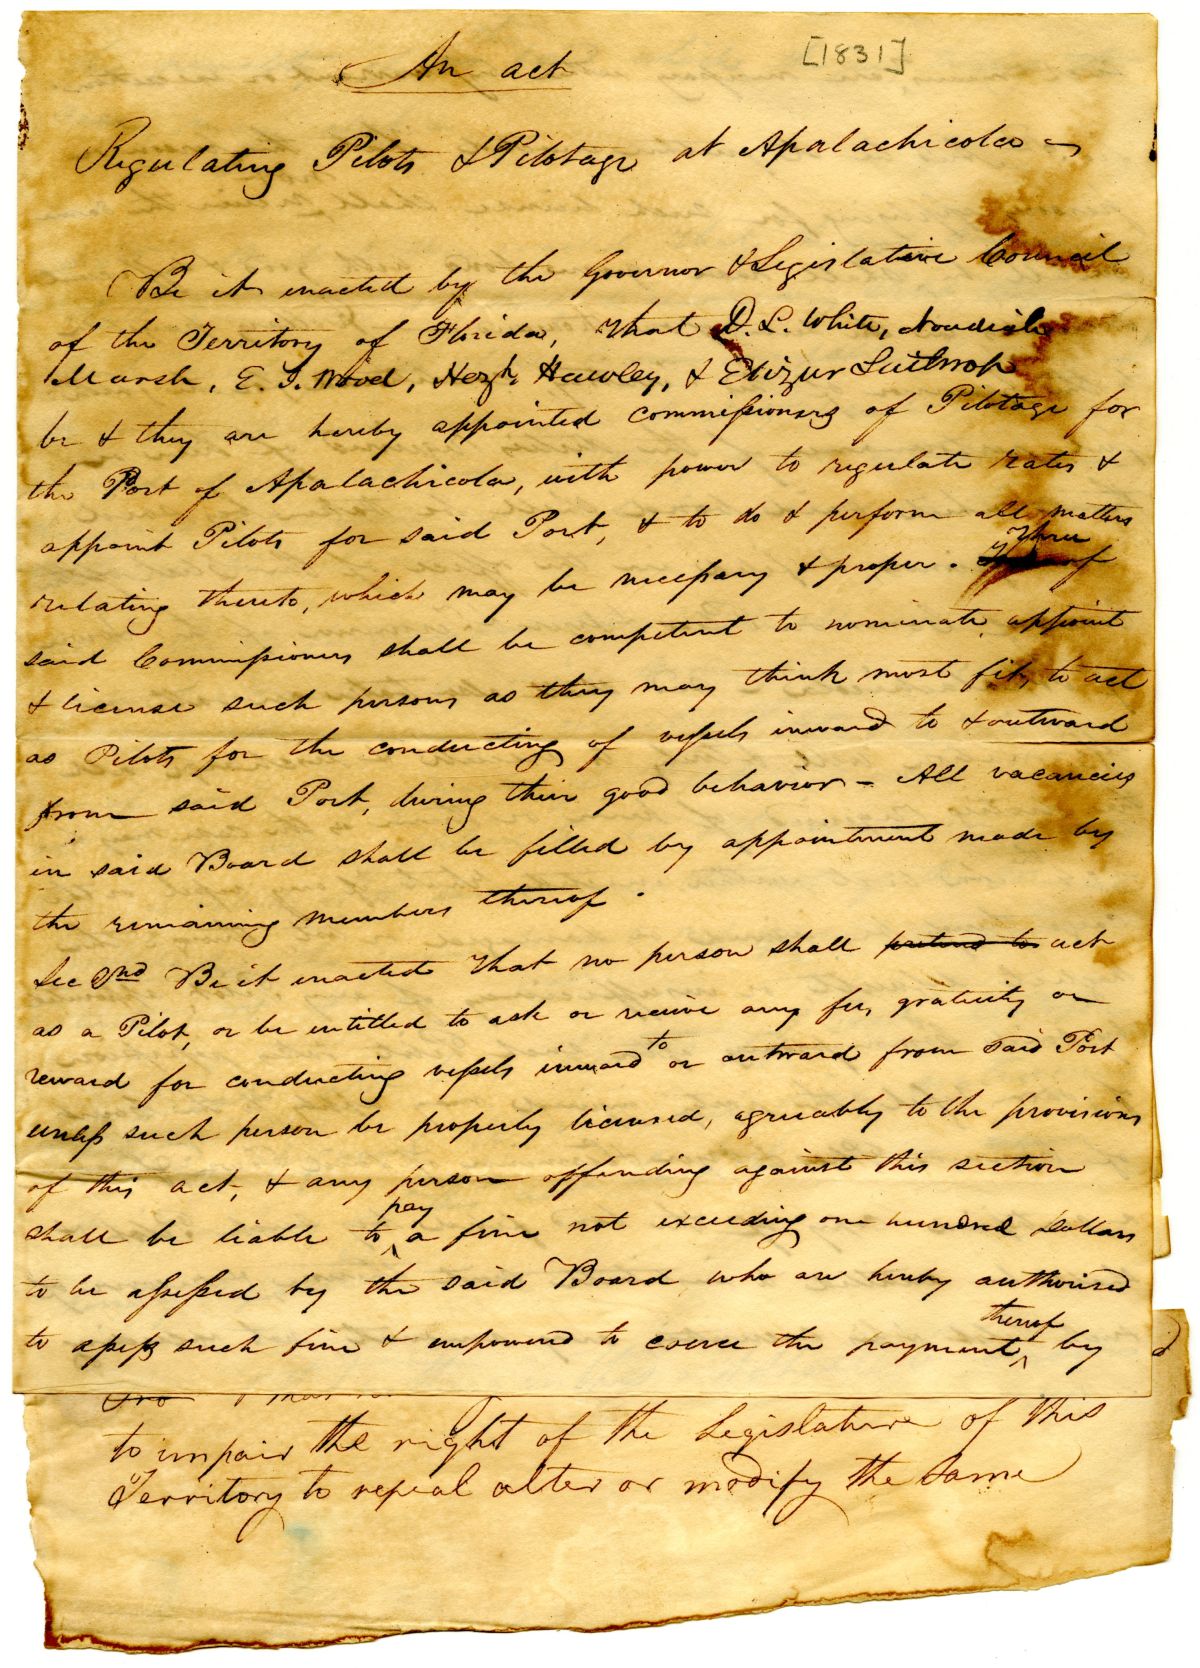 An act
[1831]
Regulating Pilots & Pilotage at Apalachicola
Be it enacted by the Governor & Legislative Council
of the Territory of Florida, That D. L. White,
Marsh, E. J. Wood, Hezh. Hawley, & Elizur
be & they are hereby appointed commissioners of Pilotage for
the Port of Apalachicola, with power to regulate rates &
appoint Pilots for said Port, & to do & perform all matters
relating thereto, which may be necessary & proper. Three of
said Commissioners shall be competent to nominate, appoint
& license such persons as they may think most fit, to act
as Pilots for the conducting of vessels inward to & outward
from said Port, during their good behavior - All vacancies
in said Board shall be filled by appointment made by
the remaining members thereof.
Sec 2nd Be it enacted That no person shall pretend to act
as a Pilot, or be entitled to ask or receive any fee, gratuity or
reward for conducting vessels inward to or outward from said Port
unless such person be properly licensed, agreeably to the provisions
of this act, & any person offending against this section
shall be liable to pay a fine not exceeding one hundred Dollars
to be assessed by the said Board who are hereby authorised
to assess such fine & empowered to coerce the payment thereof by
to impair the right of the Legislature of this
Territory to repeal alter or modify the same